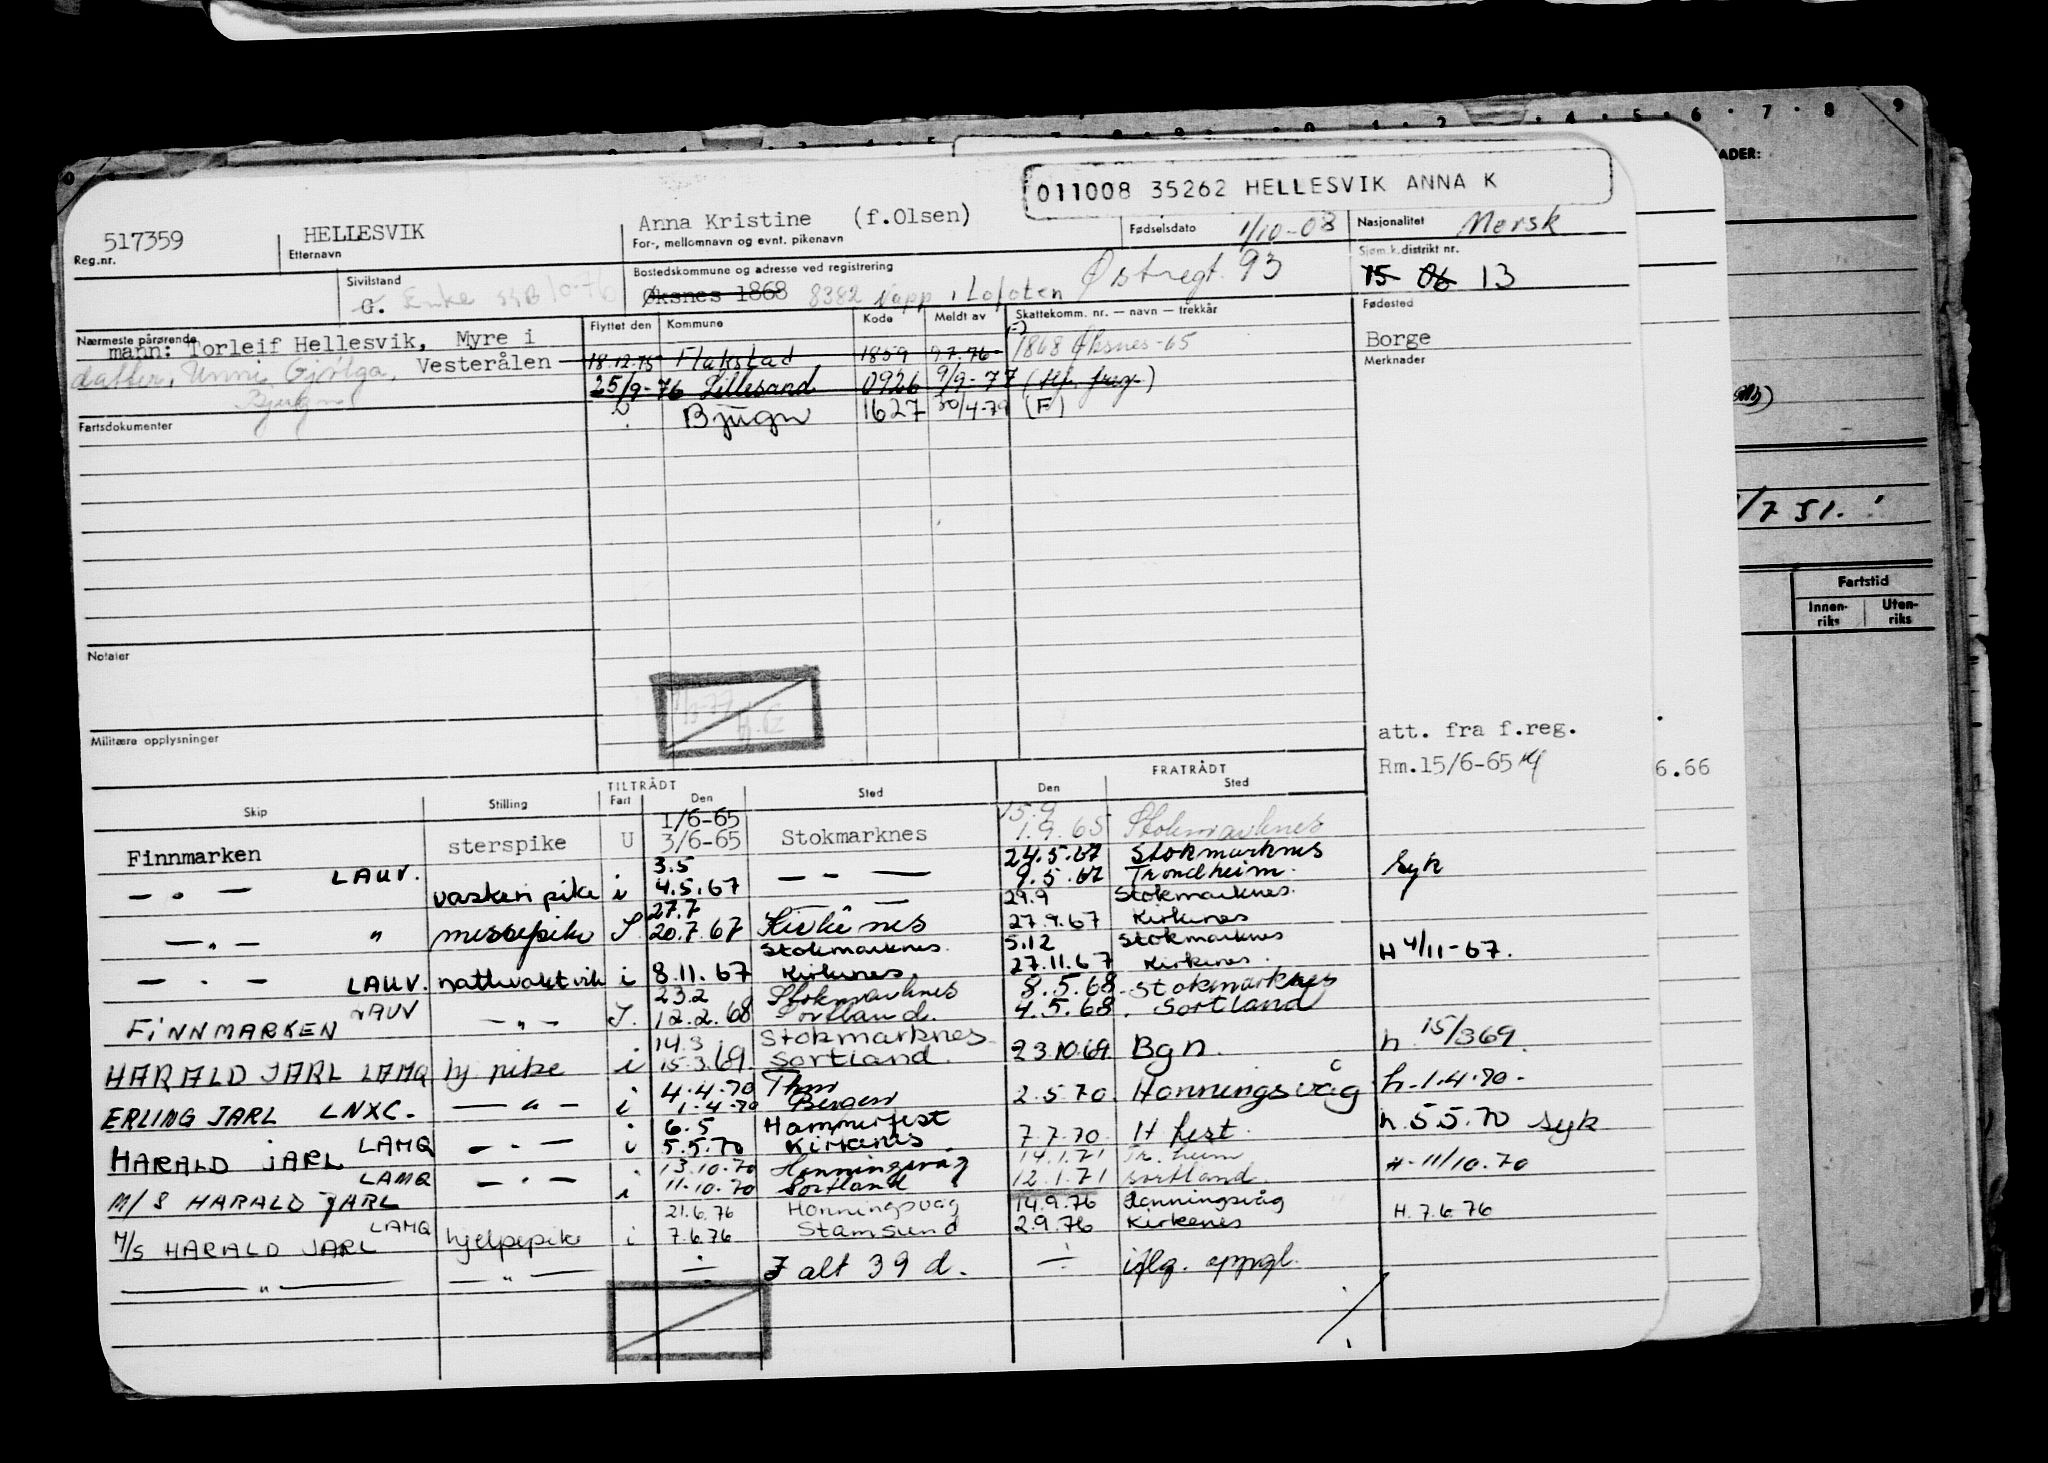 011008 35262 HELLESVIK ANNA K
517359 HELLESVIK Anna Kristine (f.Olsen) 1/10-08 Norsk
Reg.nr. Etternavn For-, mellomnavn og evnt. pikenavn Fødselsdato Nasjonalitet
Sivilstand Bostedskommune og adresse ved registrering Østregt. 93 Sjøm.k.distrikt nr.
G. Enke Øksnes 1868 8382 Napp i Lofoten 15 06 13
Nærmeste pårørende Flyttet den Kommune Kode Meldt av Skattekomm. nr. — navn — trekkår Fødested
mann: Torleif Hellesvik, Myre i Vesterålen 18.12.75 Flakstad 1859 1868 Øksnes-65 Borge
datter, Unni Bjugn 25/9-76 Lillesand 0926 9/9-77 Merknader
Fartsdokumenter Bjugn 1627 30/4-79 (F)
Notater
Militære opplysninger
att. fra f.reg.
Rm.15/6-65
TILTRÅDT FRATRÅDT
Skip Stilling Fart Den Sted Den Sted
1/6-65 15.9
Finnmarken sterspike U 3/6-65 Stokmarknes 1.9.65 Stokmarknes
3.5 24.5.67 Stokmarknes
— " — LAUV. vaskeri pike i 4.5.67 — " — 9.5.67 Trondheim. Syk
27.7 29.9 Stokmarknes.
— " — " messepike 20.7.67 Kirkenes 27.9.67 Kirkenes
Stokmarknes. 5.12 Stokmarknes
— " — LAUV. i 8.11.67 Kirkenes. 27.11.67 Kirkenes. H 4/11-67.
23.2 Stokmarknes 8.5.68 Stokmarknes
FINNMARKEN LAUV — " — 12.2.68 Sortland. 4.5.68. Sortland
14.3 Stokmarknes
HARALD JARL LAMQ hj. pike i 15.3.69 Sortland. 23.10.69 Bgn. h. 15/3 69.
4.4.70 Thm
ERLING JARL LNXC. — " — i 1.4.70 Bergen 2.5.70 Honningsvåg h. 1.4.70.
6.5 Hammerfest
HARALD JARL LAMQ — " — i 5.5.70 Kirkenes 7.7.70. H.fest. h. 5.5.70 syk
13.10.70 Honningsvåg 14.1.71 Tr.heim
M/S HARALD JARL LAMQ — " — i 11.10.70 Sortland 12.1.71 Sortland. H. 11/10.70
21.6.76 Honningsvåg 14.9.76 Honningsvåg
M/S HARALD JARL LAMQ hjelpepike i 7.6.76 Stamsund 2.9.76 Kirkenes H. 7.6.76
— " — — " — ÷ I alt 39 d. ÷ iflg. oppgl.
ADER:
/7 51.
Fartstid
Innen-riks Uten-riks
6.66